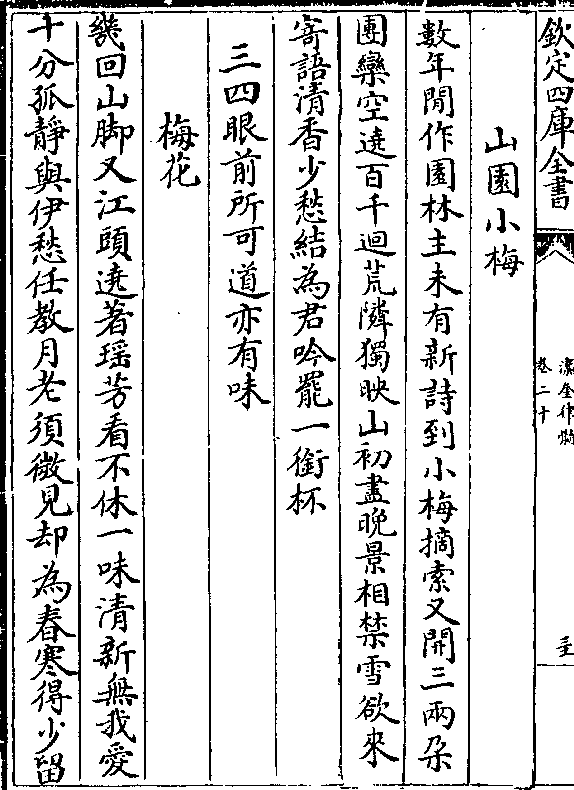 欽定四庫全書
瀛奎律髓
卷二十
山園小梅
數年閒作園林主未有新詩到小梅摘索又開三兩朶
團欒空遶百千迴荒隣獨映山初盡晩景相禁雪欲來
寄語清香少愁結為君吟罷一銜杯
三四眼前所可道亦有味
梅花
幾回山脚又江頭遶著瑶芳看不休一味清新無我愛
十分孤靜與伊愁任教月老須微見却為春寒得少留